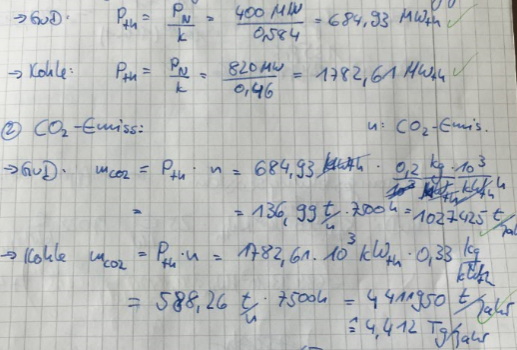 → GuD: P_th = P_N/k = 400 MW/0,584 = 684,93 MW_th ✓
→ Kohle: P_th = P_N/k = 820 MW/0,46 = 1782,61 MW_th ✓
② CO₂-Emiss: n: CO₂-Emis.
→ GuD: m_CO2 = P_th · n = 684,93 · 0,2 kg · 10³
= = 136,99 t/h · 7500h = 1027425 t/Jahr
→ Kohle m_CO2 = P_th · n = 1782,61 · 10³ kW_th · 0,33 kg/kWh
= 588,26 t/h · 7500h = 4411950 t/Jahr
≙ 4,412 Tg/Jahr